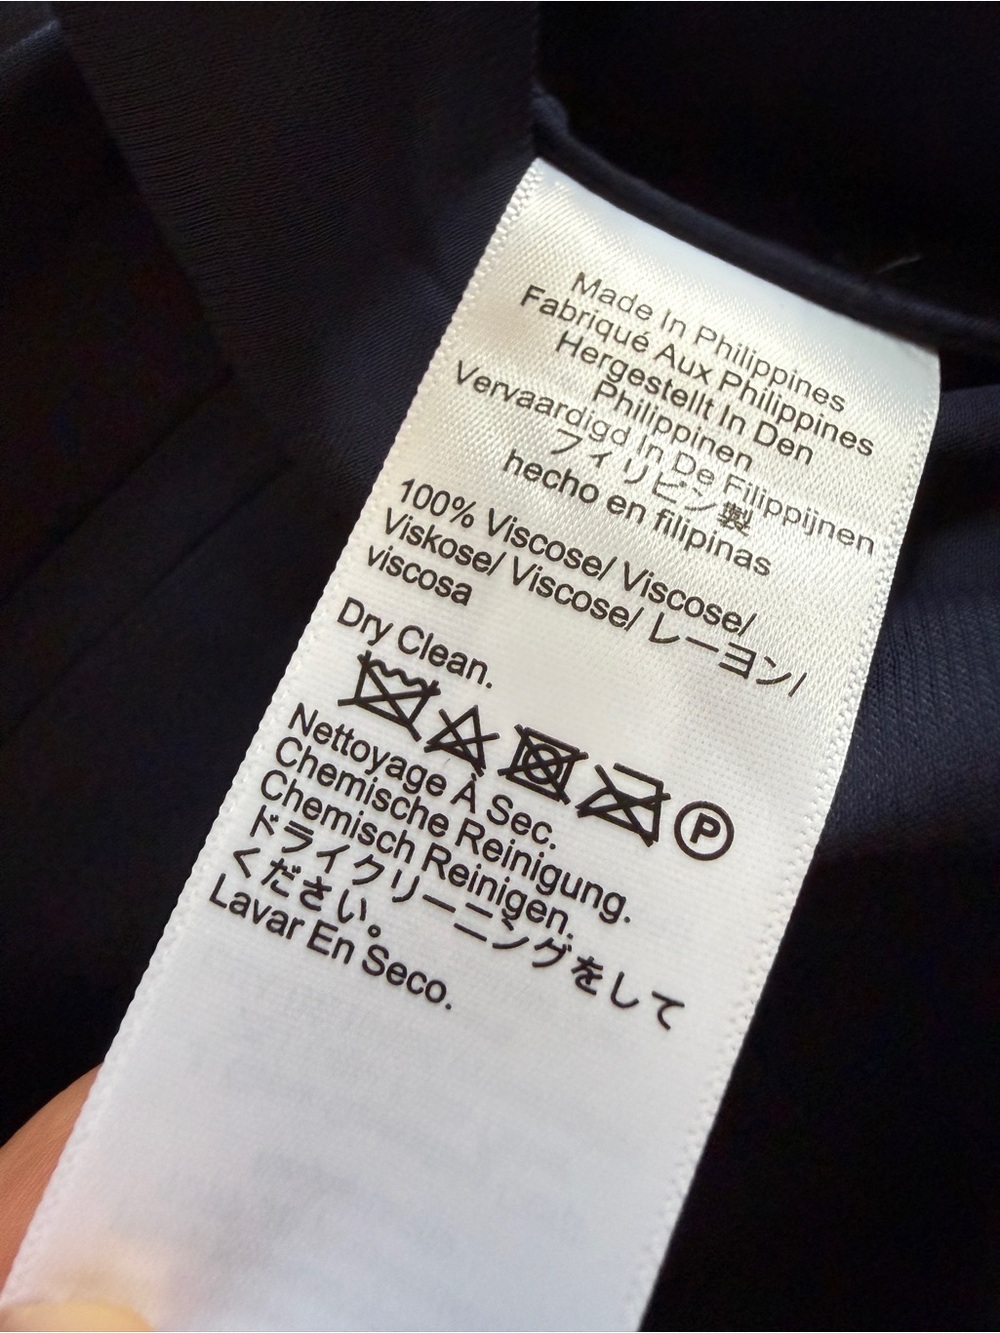 Made In Philippines
Fabriqué Aux Philippines
Hergestellt In Den
Philippinen
Vervaardigd In De Filippijnen
フィリピン製
hecho en filipinas
100% Viscose/ Viscose/
Viskose/ Viscose/ レーヨン/
viscosa
Dry Clean.
P
Nettoyage À Sec.
Chemische Reinigung.
Chemisch Reinigen.
ドライクリーニングをして
ください。
Lavar En Seco.